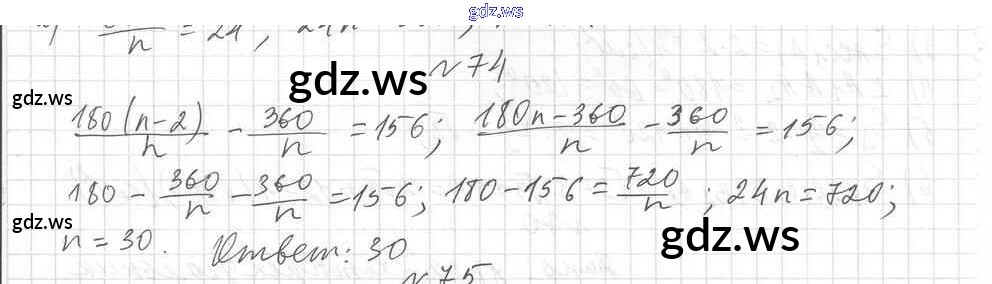 gdz.ws
/n = 24; 24n
№ 74
gdz.ws
gdz.ws
180(n-2)/n - 360/n = 156; 180n-360/n - 360/n = 156;
180 - 360/n - 360/n = 156; 180-156 = 720/n; 24n = 720;
gdz.ws
gdz.ws
n = 30. Ответ: 30
№ 75